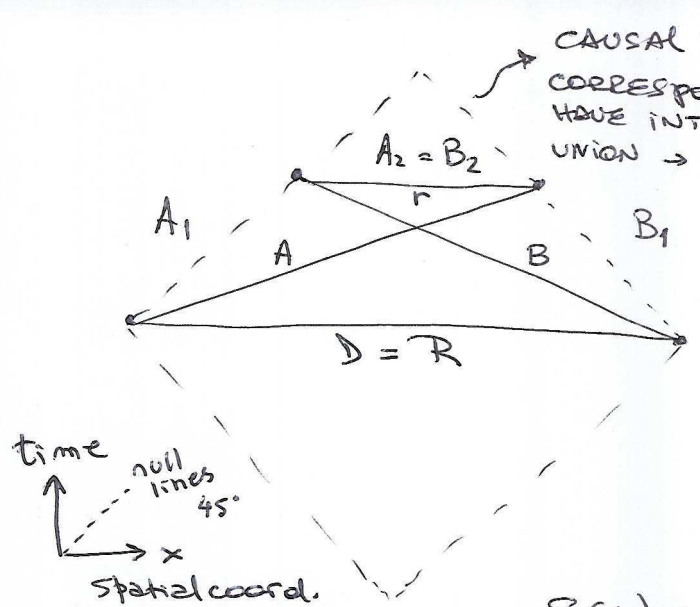 CAUSAL
CORRESPE
HAVE INT
UNION →
A₂ = B₂
r
A₁
B₁
A
B
D = R
time
null
lines
45°
x
spatial coord.